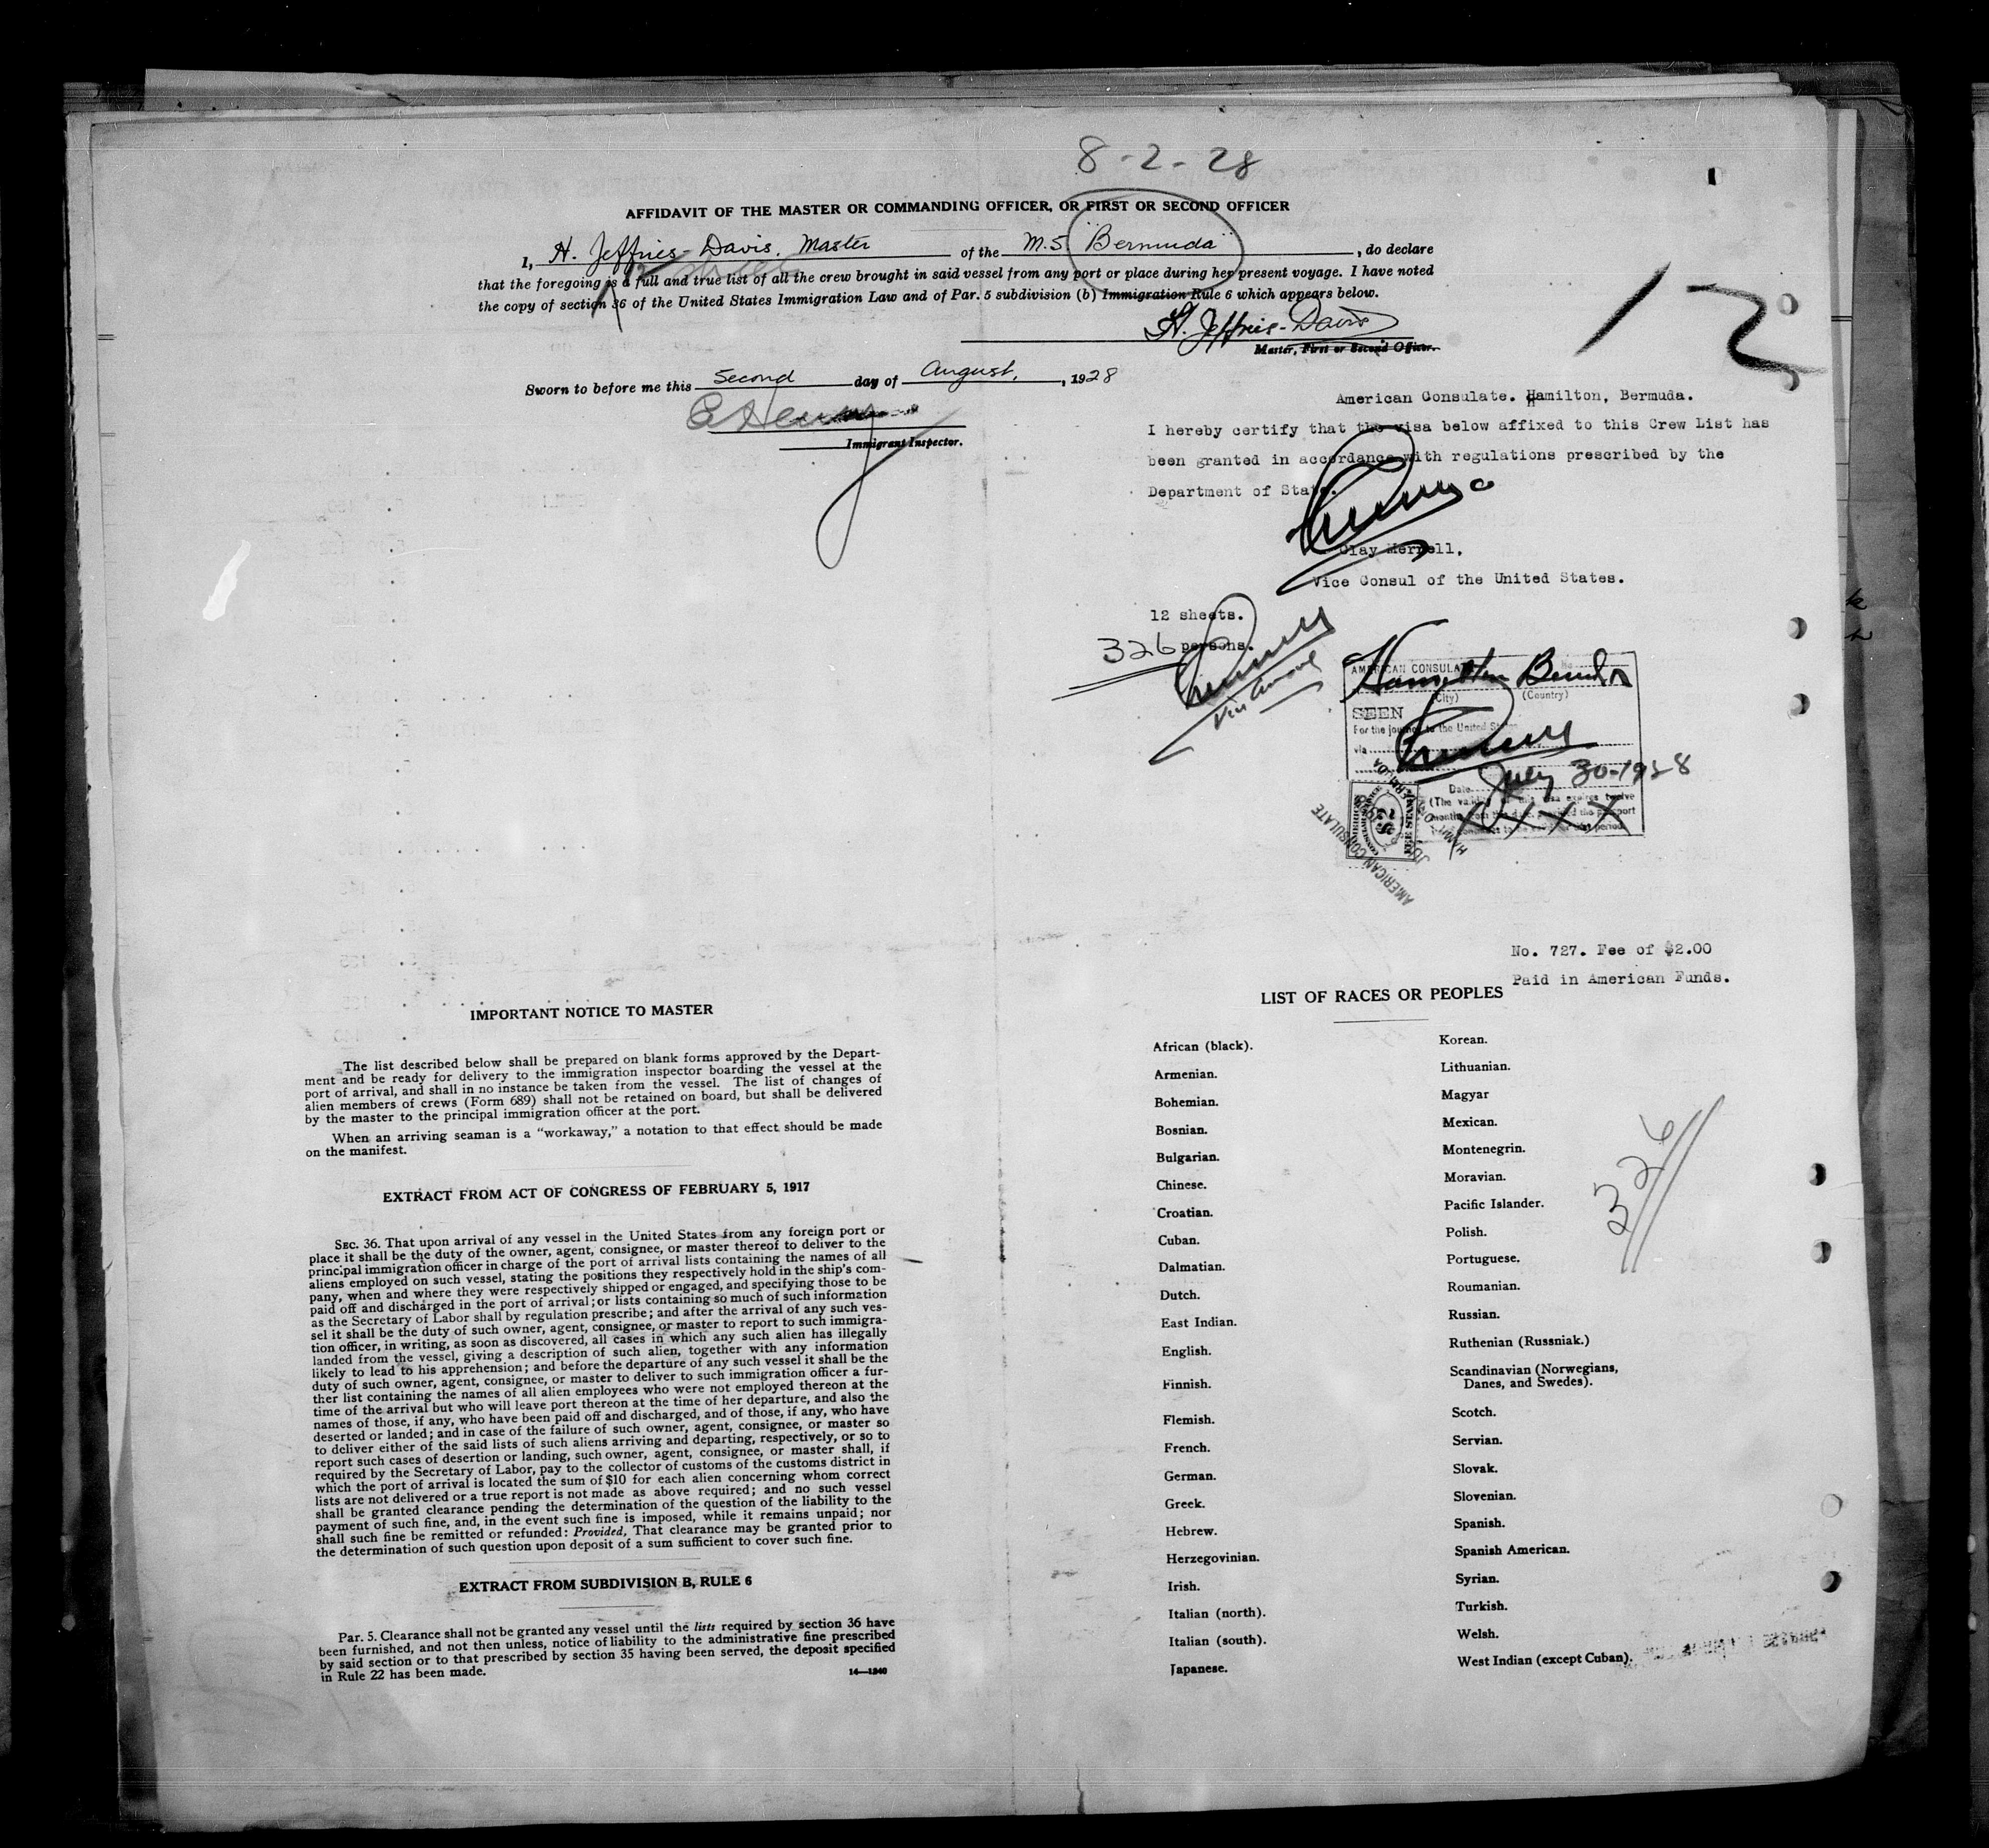 8-2-28
AFFIDAVIT OF THE MASTER OR COMMANDING OFFICER, OR FIRST OR SECOND OFFICER
I, H. Jeffries-Davis, Master of the M.S. "Bermuda", do declare
that the foregoing is a full and true list of all the crew brought in said vessel from any port or place during her present voyage. I have noted
the copy of section 36 of the United States Immigration Law and of Par. 5 subdivision (b) Immigration Rule 6 which appears below.
12
H. Jeffries-Davis
Master, First or Second Officer.
Sworn to before me this Second day of August, 1928
Immigrant Inspector.
American Consulate. Hamilton, Bermuda.
I hereby certify that the visa below affixed to this Crew List has
been granted in accordance with regulations prescribed by the
Department of State.
Clay Merrell,
Vice Consul of the United States.
12 sheets.
326 persons.
AMERICAN CONSULATE
Hamilton
(City) (Country)
SEEN
For the journey to the United States
via
July 30-1928
Date
XXXX
$2
FEE STAMP
AMERICAN CONSULATE
No. 727. Fee of $2.00
Paid in American Funds.
IMPORTANT NOTICE TO MASTER
The list described below shall be prepared on blank forms approved by the Depart-
ment and be ready for delivery to the immigration inspector boarding the vessel at the
port of arrival, and shall in no instance be taken from the vessel. The list of changes of
alien members of crews (Form 689) shall not be retained on board, but shall be delivered
by the master to the principal immigration officer at the port.
When an arriving seaman is a "workaway," a notation to that effect should be made
on the manifest.
EXTRACT FROM ACT OF CONGRESS OF FEBRUARY 5, 1917
SEC. 36. That upon arrival of any vessel in the United States from any foreign port or
place it shall be the duty of the owner, agent, consignee, or master thereof to deliver to the
principal immigration officer in charge of the port of arrival lists containing the names of all
aliens employed on such vessel, stating the positions they respectively hold in the ship's com-
pany, when and where they were respectively shipped or engaged, and specifying those to be
paid off and discharged in the port of arrival; or lists containing so much of such information
as the Secretary of Labor shall by regulation prescribe; and after the arrival of any such ves-
sel it shall be the duty of such owner, agent, consignee, or master to report to such immigra-
tion officer, in writing, as soon as discovered, all cases in which any such alien has illegally
landed from the vessel, giving a description of such alien, together with any information
likely to lead to his apprehension; and before the departure of any such vessel it shall be the
duty of such owner, agent, consignee, or master to deliver to such immigration officer a fur-
ther list containing the names of all alien employees who were not employed thereon at the
time of the arrival but who will leave port thereon at the time of her departure, and also the
names of those, if any, who have been paid off and discharged, and of those, if any, who have
deserted or landed; and in case of the failure of such owner, agent, consignee, or master so
to deliver either of the said lists of such aliens arriving and departing, respectively, or so to
report such cases of desertion or landing, such owner, agent, consignee, or master shall, if
required by the Secretary of Labor, pay to the collector of customs of the customs district in
which the port of arrival is located the sum of $10 for each alien concerning whom correct
lists are not delivered or a true report is not made as above required; and no such vessel
shall be granted clearance pending the determination of the question of the liability to the
payment of such fine, and, in the event such fine is imposed, while it remains unpaid; nor
shall such fine be remitted or refunded: Provided, That clearance may be granted prior to
the determination of such question upon deposit of a sum sufficient to cover such fine.
EXTRACT FROM SUBDIVISION B, RULE 6
Par. 5. Clearance shall not be granted any vessel until the lists required by section 36 have
been furnished, and not then unless, notice of liability to the administrative fine prescribed
by said section or to that prescribed by section 35 having been served, the deposit specified
in Rule 22 has been made.
14—1240
LIST OF RACES OR PEOPLES
African (black).
Armenian.
Bohemian.
Bosnian.
Bulgarian.
Chinese.
Croatian.
Cuban.
Dalmatian.
Dutch.
East Indian.
English.
Finnish.
Flemish.
French.
German.
Greek.
Hebrew.
Herzegovinian.
Irish.
Italian (north).
Italian (south).
Japanese.
Korean.
Lithuanian.
Magyar
Mexican.
Montenegrin.
Moravian.
Pacific Islander.
Polish.
Portuguese.
Roumanian.
Russian.
Ruthenian (Russniak.)
Scandinavian (Norwegians,
Danes, and Swedes).
Scotch.
Servian.
Slovak.
Slovenian.
Spanish.
Spanish American.
Syrian.
Turkish.
Welsh.
West Indian (except Cuban).
326